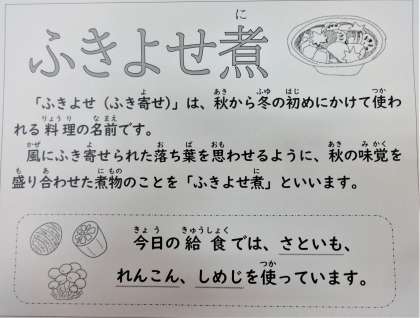 ふきよせ煮
「ふきよせ（ふき寄せ）」は、秋から冬の初めにかけて使わ
れる料理の名前です。
風にふき寄せられた落ち葉を思わせるように、秋の味覚を
盛り合わせた煮物のことを「ふきよせ煮」といいます。
今日の給食では、さといも、
れんこん、しめじを使っています。